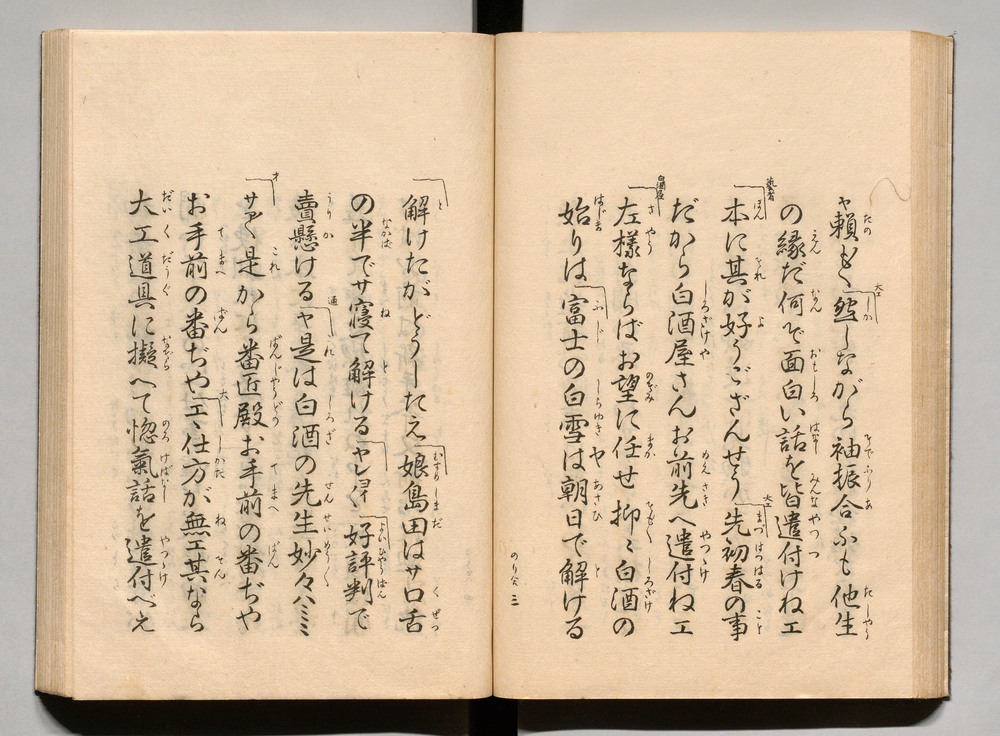 ャ頼もく 然しながら袖振合ふも他生
の縁だ何で面白い話を皆遣付けねエ
本に其が好うござんせう 先初春の事
だから白酒屋さんお前先へ遣付ねエ
左様ならばお望に任せ抑〻白酒の
始りは 富士の白雪ャ朝日で解ける
のり合 三
解けたがどうしたえ 娘島田はサ口舌
の半でサ寝て解ける ヤンヨイく 好評判で
賣懸ける ャ是は白酒の先生妙々ハミミミ
サアく是から番匠殿お手前の番ぢや
お手前の番ぢや エヽ仕方が無エ其なら
大工道具に擬へて惚氣話を遣付べえ